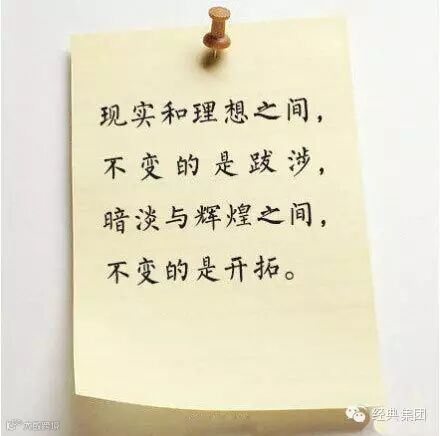 现实和理想之间，
不变的是跋涉，
暗淡与辉煌之间，
不变的是开拓。
经典集团